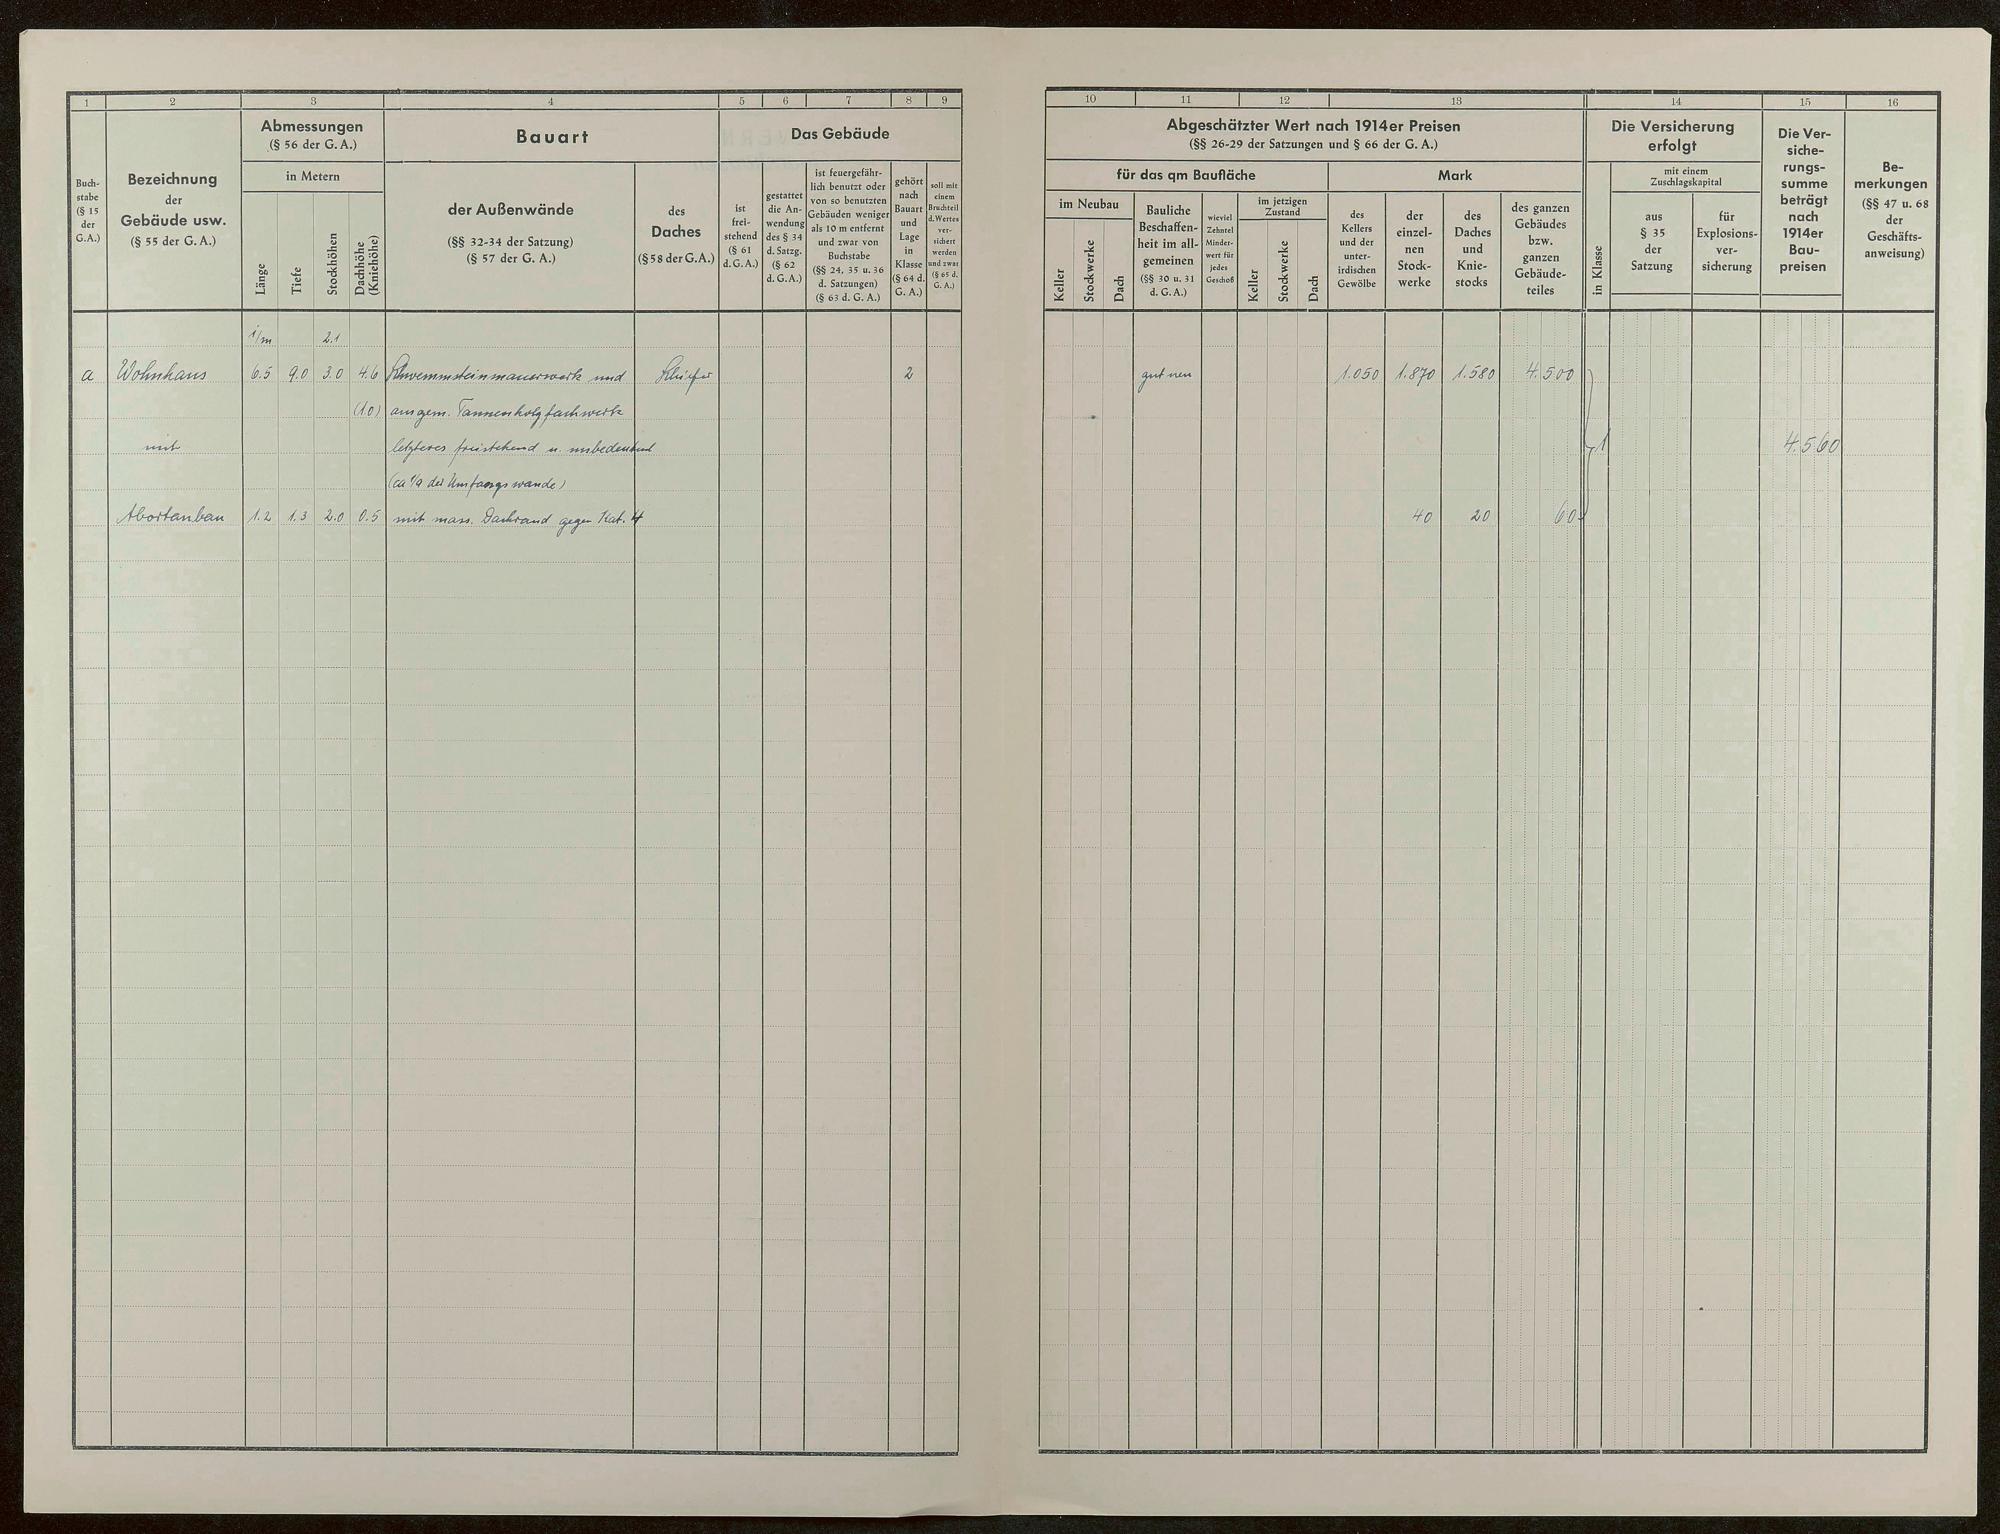 1 2 3 4 5 6 7 8 9
Buch-
stabe
(§ 15
der
G.A.)
Bezeichnung
der
Gebäude usw.
(§ 55 der G. A.)
Abmessungen
(§ 56 der G. A.)
in Metern
Länge
Tiefe
Stockhöhen
Dachhöhe
(Kniehöhe)
Bauart
der Außenwände
(§§ 32-34 der Satzung)
(§ 57 der G. A.)
des
Daches
(§ 58 der G.A.)
Das Gebäude
ist
frei-
stehend
(§ 61
d. G. A.)
gestattet
die An-
wendung
des § 34
d. Satzg.
(§ 62
d. G. A.)
ist feuergefähr-
lich benutzt oder
von so benutzten
Gebäuden weniger
als 10 m entfernt
und zwar von
Buchstabe
(§§ 24, 35 u. 36
d. Satzungen)
(§ 63 d. G. A.)
gehört
nach
Bauart
und
Lage
in
Klasse
(§ 64 d.
G. A.)
soll mit
einem
Bruchteil
d. Wertes
ver-
sichert
werden
und zwar
(§ 65 d.
G. A.)
i/m 2.1
a Wohnhaus 6.5 9.0 3.0 4.6 Schwemmsteinmauerwerk und Schiefer 2
(1.0) ausgem. Tannenholzfachwerk
mit letzteres freistehend u. unbedeutend
(ca 1/9 der Umfangswände)
Abortanbau 1.2 1.3 2.0 0.5 mit mass. gegen Kat. 4
10 11 12 13 14 15 16
Abgeschätzter Wert nach 1914er Preisen
(§§ 26-29 der Satzungen und § 66 der G. A.)
für das qm Baufläche
im Neubau
Keller
Stockwerke
Dach
Bauliche
Beschaffen-
heit im all-
gemeinen
(§§ 30 u. 31
d. G. A.)
wieviel
Zehntel
Minder-
wert für
jedes
Geschoß
im jetzigen
Zustand
Keller
Stockwerke
Dach
Mark
des
Kellers
und der
unter-
irdischen
Gewölbe
der
einzel-
nen
Stock-
werke
des
Daches
und
Knie-
stocks
des ganzen
Gebäudes
bzw.
ganzen
Gebäude-
teiles
Die Versicherung
erfolgt
in Klasse
mit einem
Zuschlagskapital
aus
§ 35
der
Satzung
für
Explosions-
ver-
sicherung
Die Ver-
siche-
rungs-
summe
beträgt
nach
1914er
Bau-
preisen
Be-
merkungen
(§§ 47 u. 68
der
Geschäfts-
anweisung)
gut neu 1.050 1.870 1.580 4.500
1 4.560
40 20 60